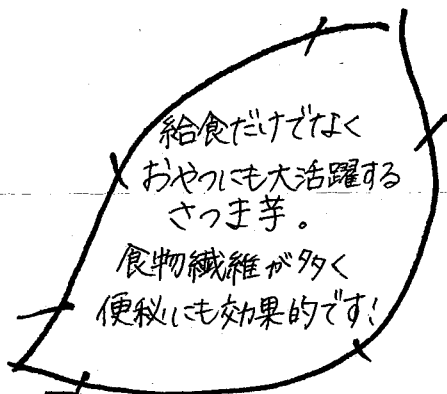 給食だけでなく
おやつにも大活躍する
さつま芋。
食物繊維が多く
便秘にも効果的です!